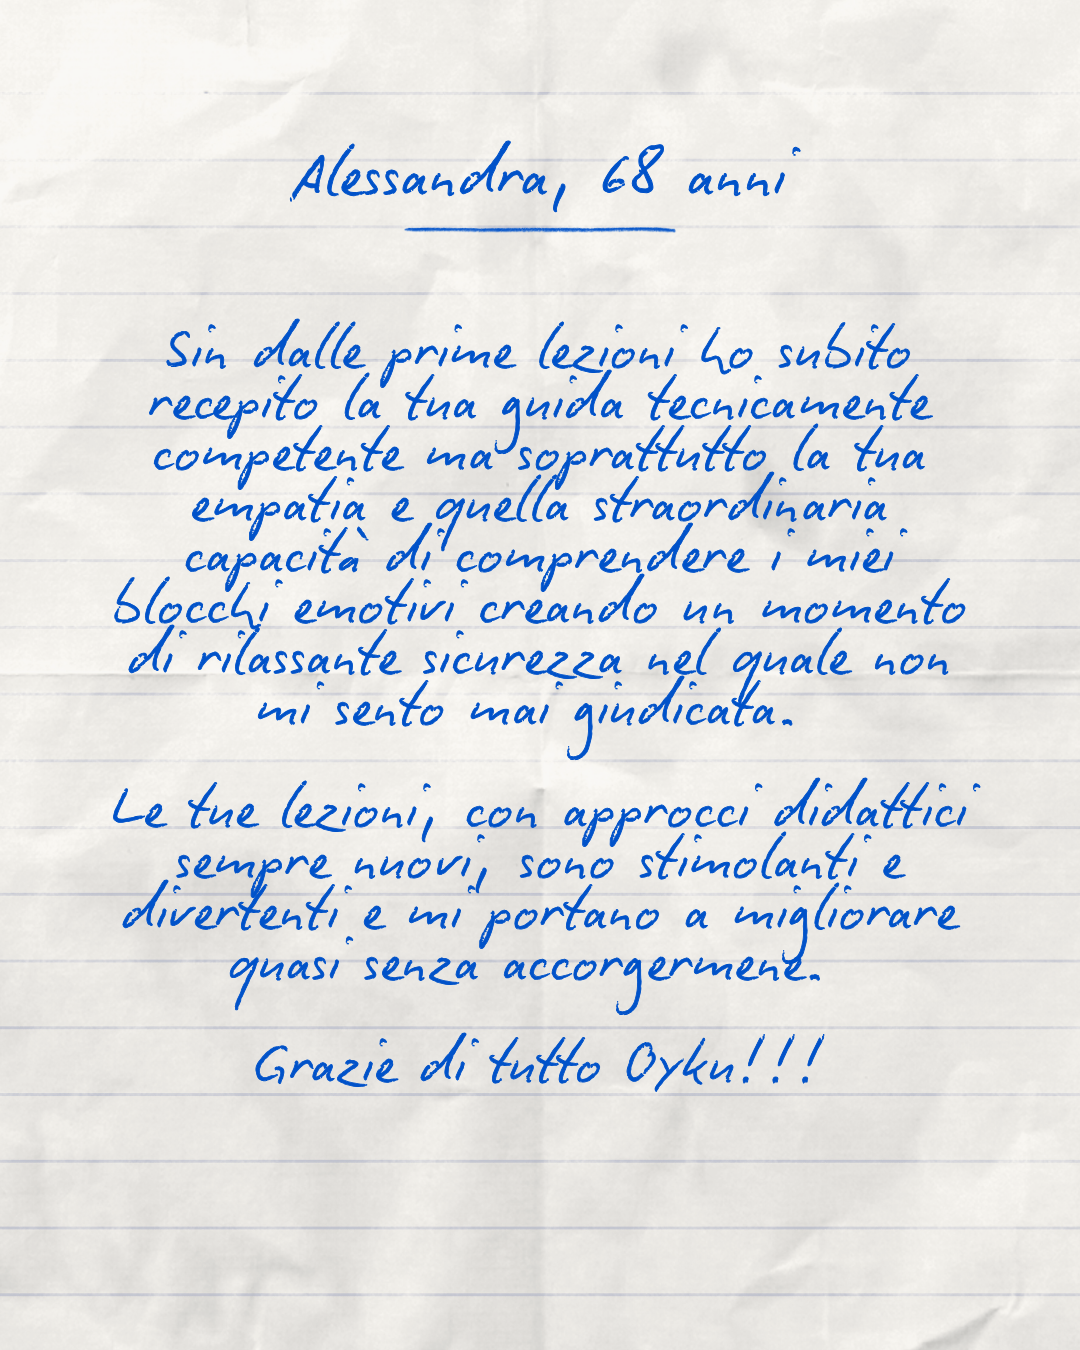 Alessandra, 68 anni
Sin dalle prime lezioni ho subito
recepito la tua guida tecnicamente
competente ma soprattutto la tua
empatia e quella straordinaria
capacità di comprendere i miei
blocchi emotivi creando un momento
di rilassante sicurezza nel quale non
mi sento mai giudicata.
Le tue lezioni, con approcci didattici
sempre nuovi, sono stimolanti e
divertenti e mi portano a migliorare
quasi senza accorgermene.
Grazie di tutto Oyku!!!